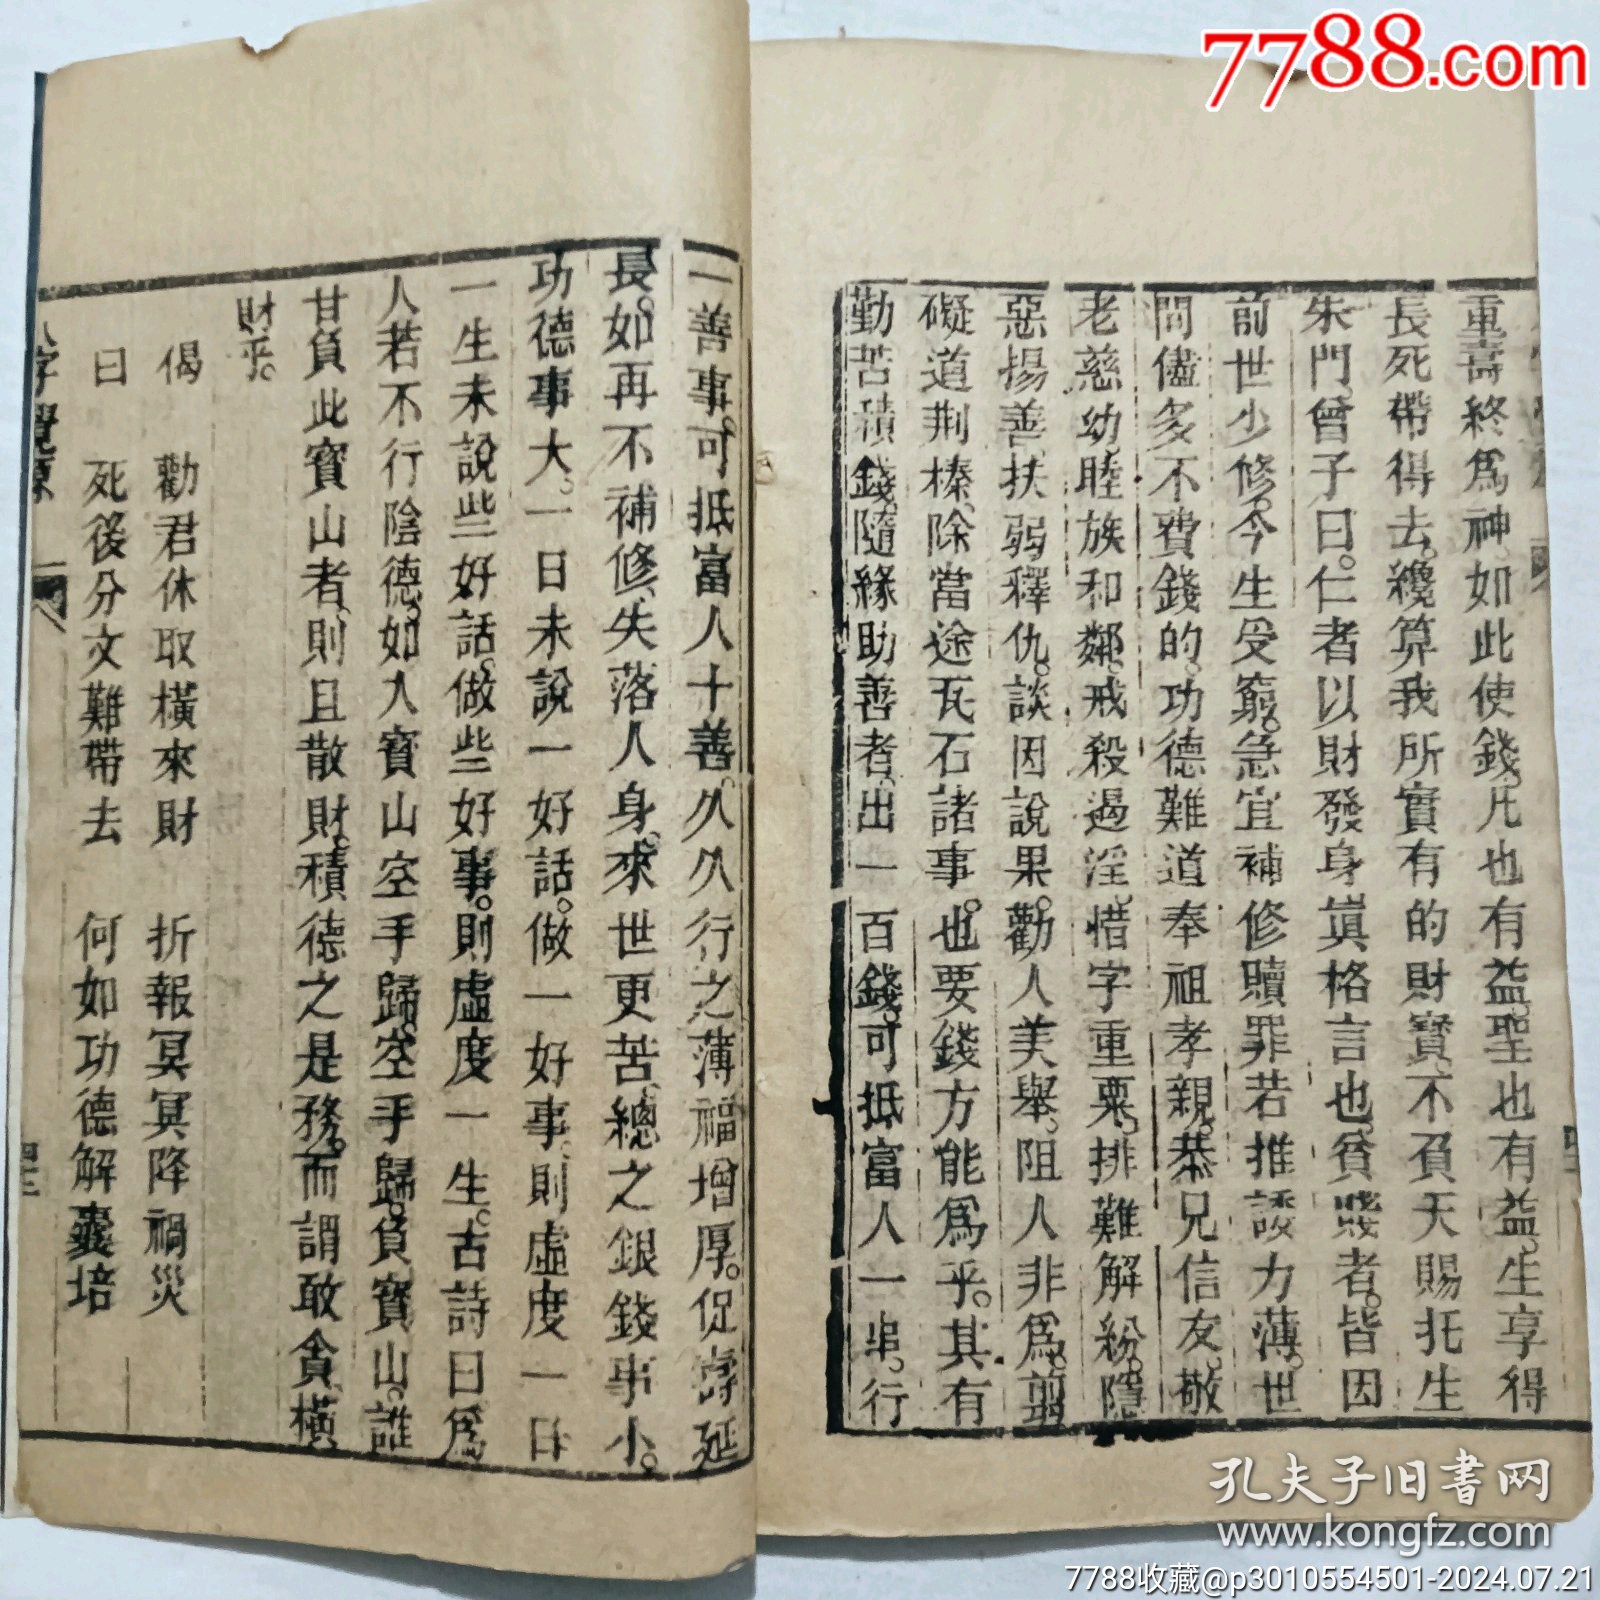 7788.com
重壽終爲神如此使錢。凡也有益。聖也有益。生享得
長死帶得去。纔算我所實有的財寶。不負天賜托生
朱門。曾子曰。仁者以財發身眞格言也。貧賤者。皆因
前世少修。今生受窮。急宜補修贖罪若推諉力薄。世
間儘多不費錢的。功德難道奉祖孝親。恭兄信友。敬
老慈幼。睦族和鄰。戒殺遏淫。惜字重粟。排難解紛。隱
惡揚善。扶弱釋仇。談因說果。勸人美舉。阻人非爲。剪
礙道荆榛、除當途瓦石諸事。也要錢方能爲乎。其有
勤苦積錢。隨緣助善者。出一百錢。可抵富人一串。行
一善事。可抵富人十善。久久行之薄福增厚。促壽延
長。如再不補修、失落人身。來世更苦、總之銀錢事小。
功德事大。一日未說一好話。做一好事、則虛度一日
一生未說些好話。做些好事。則虛度一生。古詩曰爲
人若不行陰德。如入寶山空手歸。空手歸。負寶山。誰
甘負此寶山者、則且散財。積德之是務。而謂敢貪橫
財乎。
偈 勸君休取橫來財 折報冥冥降禍災
曰 死後分文難帶去 何如功德解囊培
孔夫子旧书网
www.kongfz.com
7788收藏@p3010554501-2024.07.21